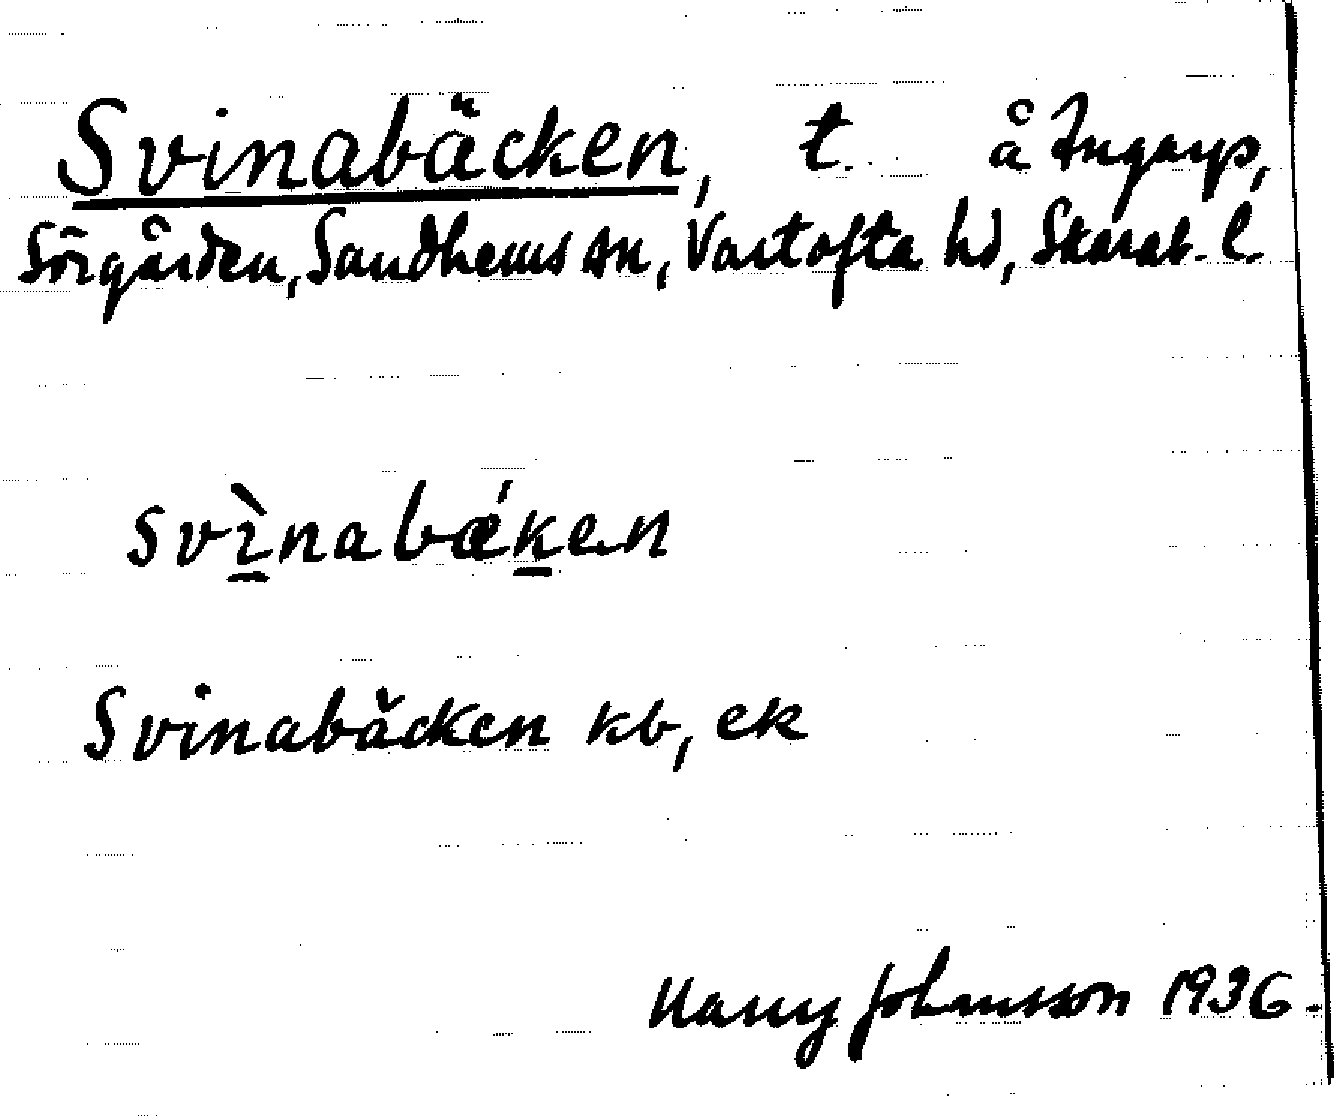 Svinabäcken, t. å Ingarp,
Sörgården, Sandhems sn, Vartofta hd, Skarab. l.
svì̱nabǽḵen
Svinabäcken kb, ek
Harry Johansson 1936.